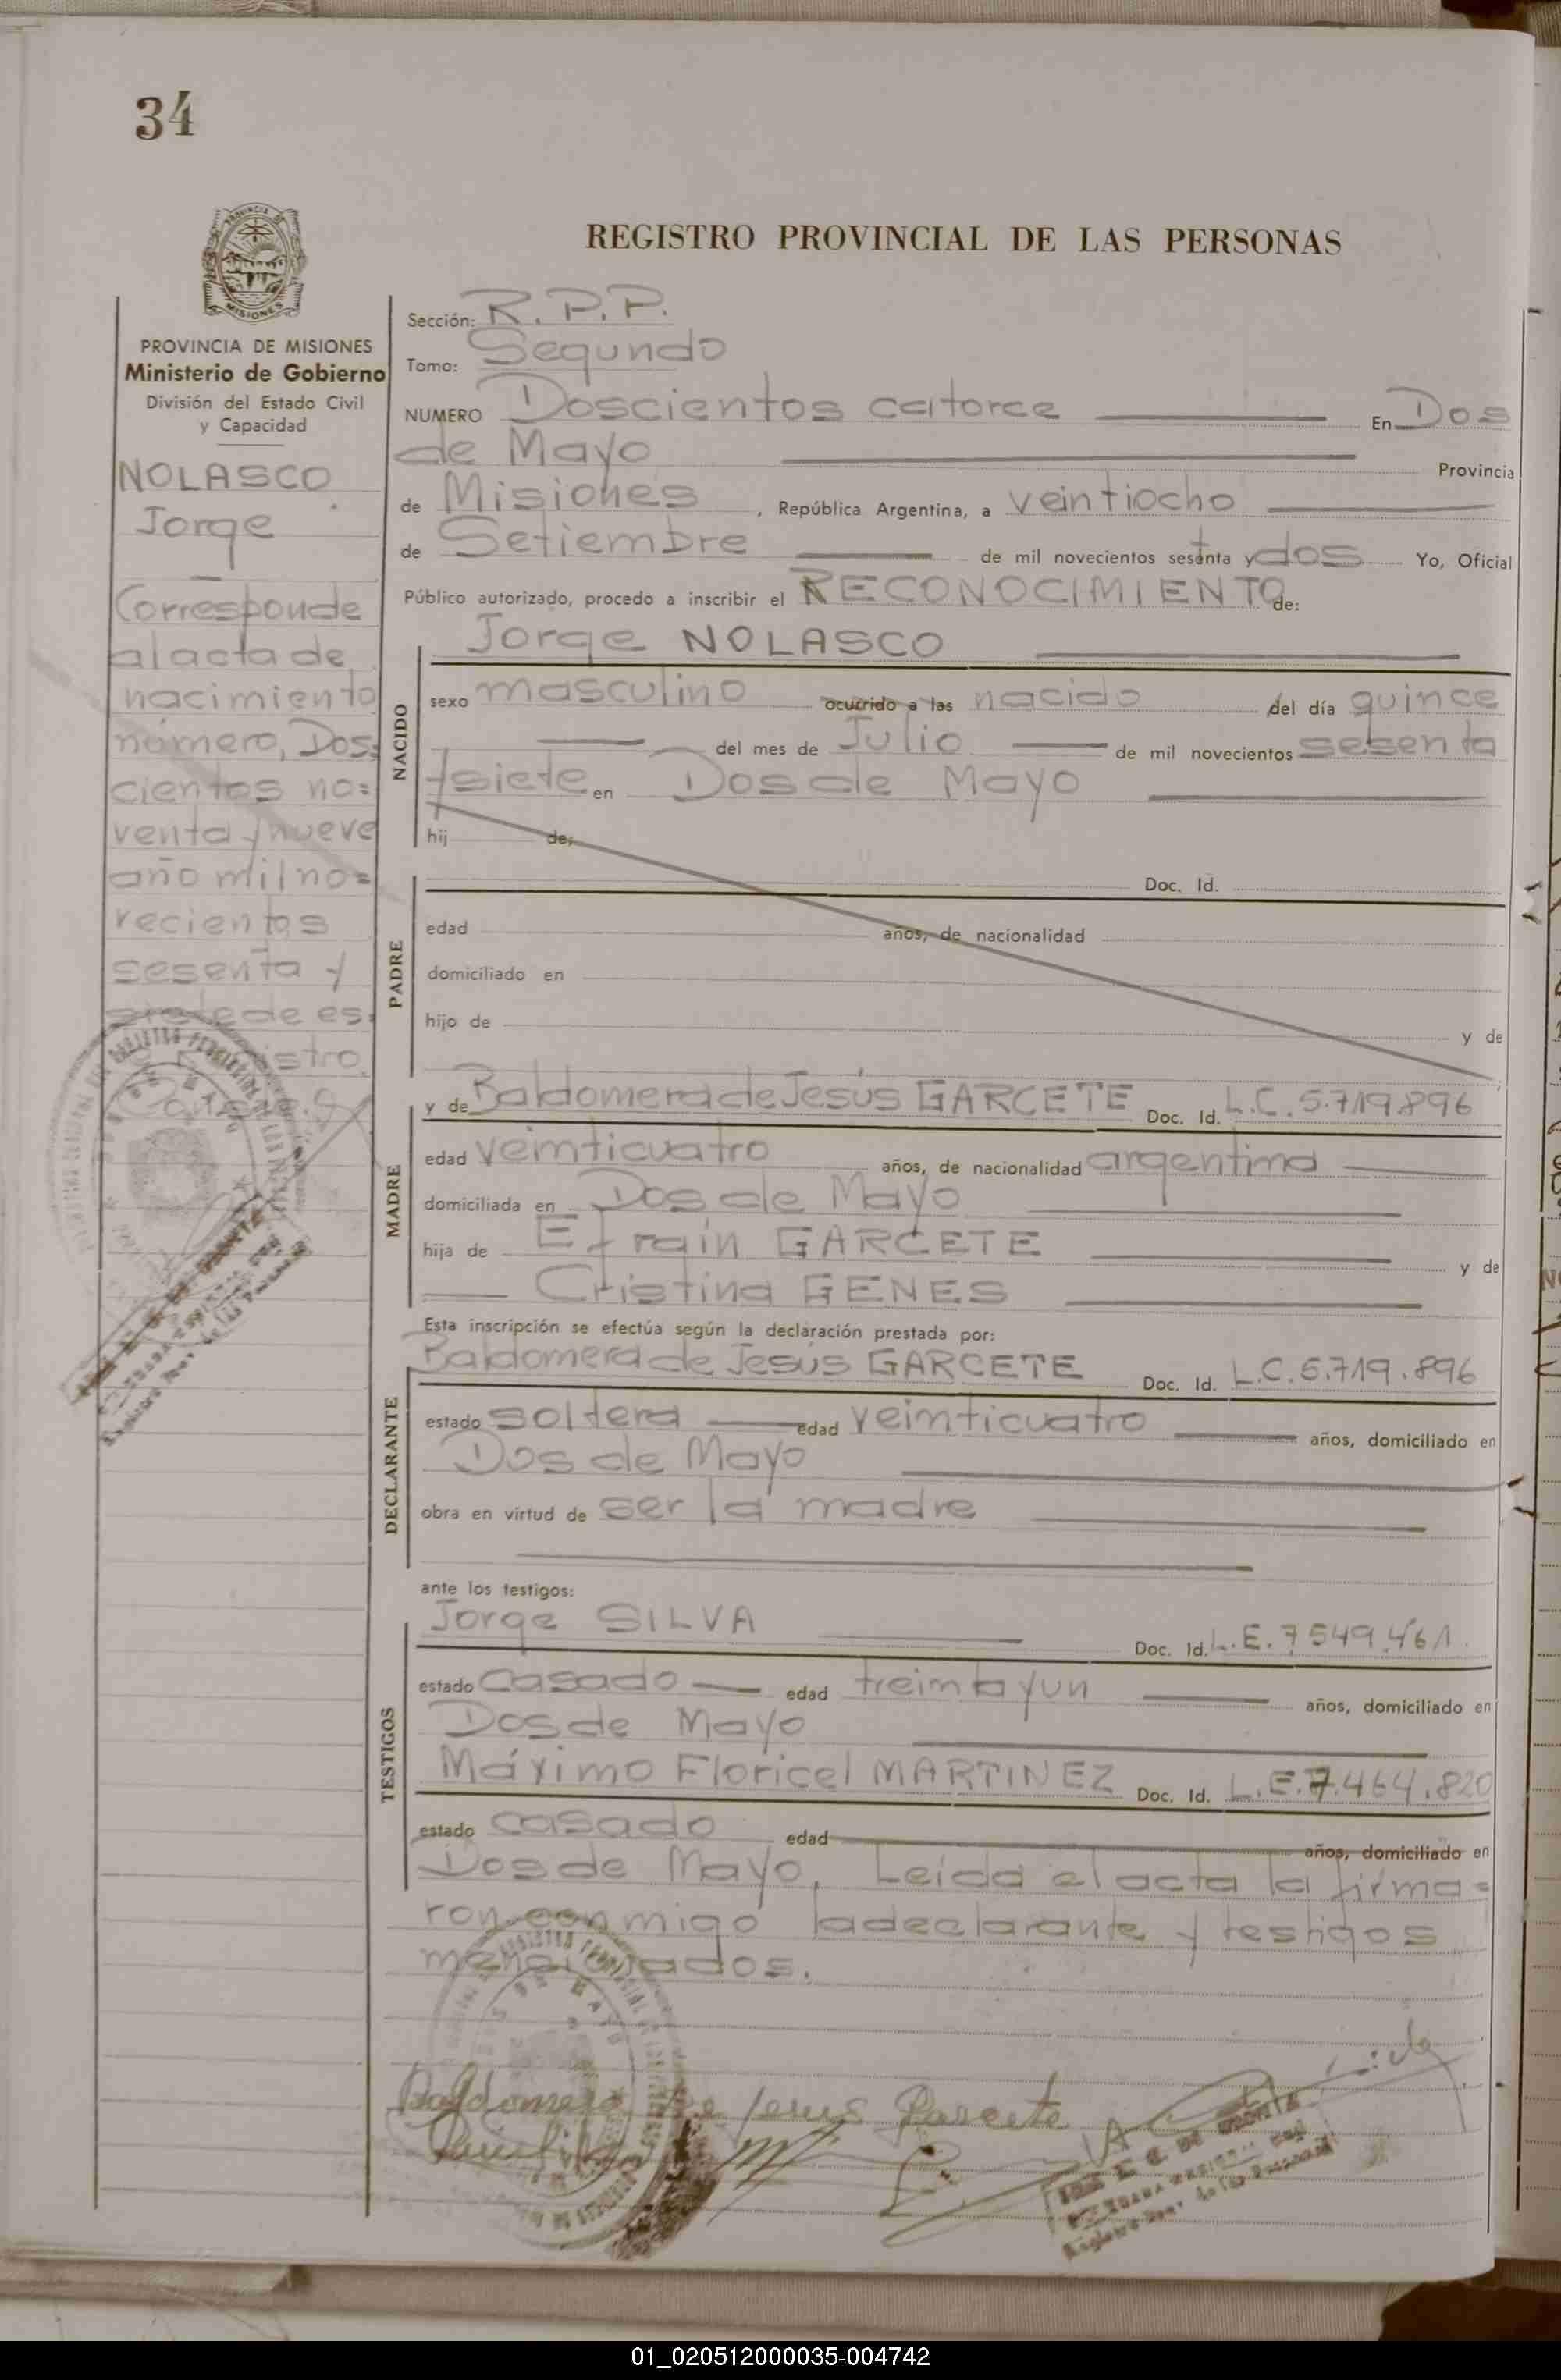 34
REGISTRO PROVINCIAL DE LAS PERSONAS
PROVINCIA DE MISIONES
Ministerio de Gobierno
División del Estado Civil
y Capacidad
NOLASCO
Jorge
Corresponde
al acta de
nacimiento
número, Dos=
cientos no=
venta y nueve
año mil no=
vecientos
sesenta y
siete de es=
Sección: R.P.P.
Tomo: Segundo
NUMERO Doscientos catorce En Dos
de Mayo Provincia
de Misiones, República Argentina, a veintiocho
de Setiembre de mil novecientos sesenta y dos Yo, Oficial
Público autorizado, procedo a inscribir el RECONOCIMIENTO de:
Jorge NOLASCO
NACIDO
sexo masculino ocurrido a las nacido del día quince
del mes de Julio de mil novecientos sesenta
y siete en Dos de Mayo
hij de:
PADRE
Doc. Id.
edad años, de nacionalidad
domiciliado en
hijo de y de
MADRE
y de Baldomera de Jesús GARCETE Doc. Id. L.C. 5.719.896
edad veinticuatro años, de nacionalidad argentina
domiciliada en Dos de Mayo
hija de Efraín GARCETE y de
Cristina GENES
Esta inscripción se efectúa según la declaración prestada por:
DECLARANTE
Baldomera de Jesús GARCETE Doc. Id. L.C. 5.719.896
estado soltera edad veinticuatro años, domiciliado en
Dos de Mayo
obra en virtud de ser la madre
ante los testigos:
TESTIGOS
Jorge SILVA Doc. Id. L.E. 7.549.461.
estado casado edad treinta y un años, domiciliado en
Dos de Mayo
Máximo Floricel MARTINEZ Doc. Id. L.E. 7.464.820
estado casado edad años, domiciliado en
Dos de Mayo. Leída el acta la firma=
ron conmigo la declarante y testigos
mencionados.
Baldomera de Jesus Garcete
01_020512000035-004742